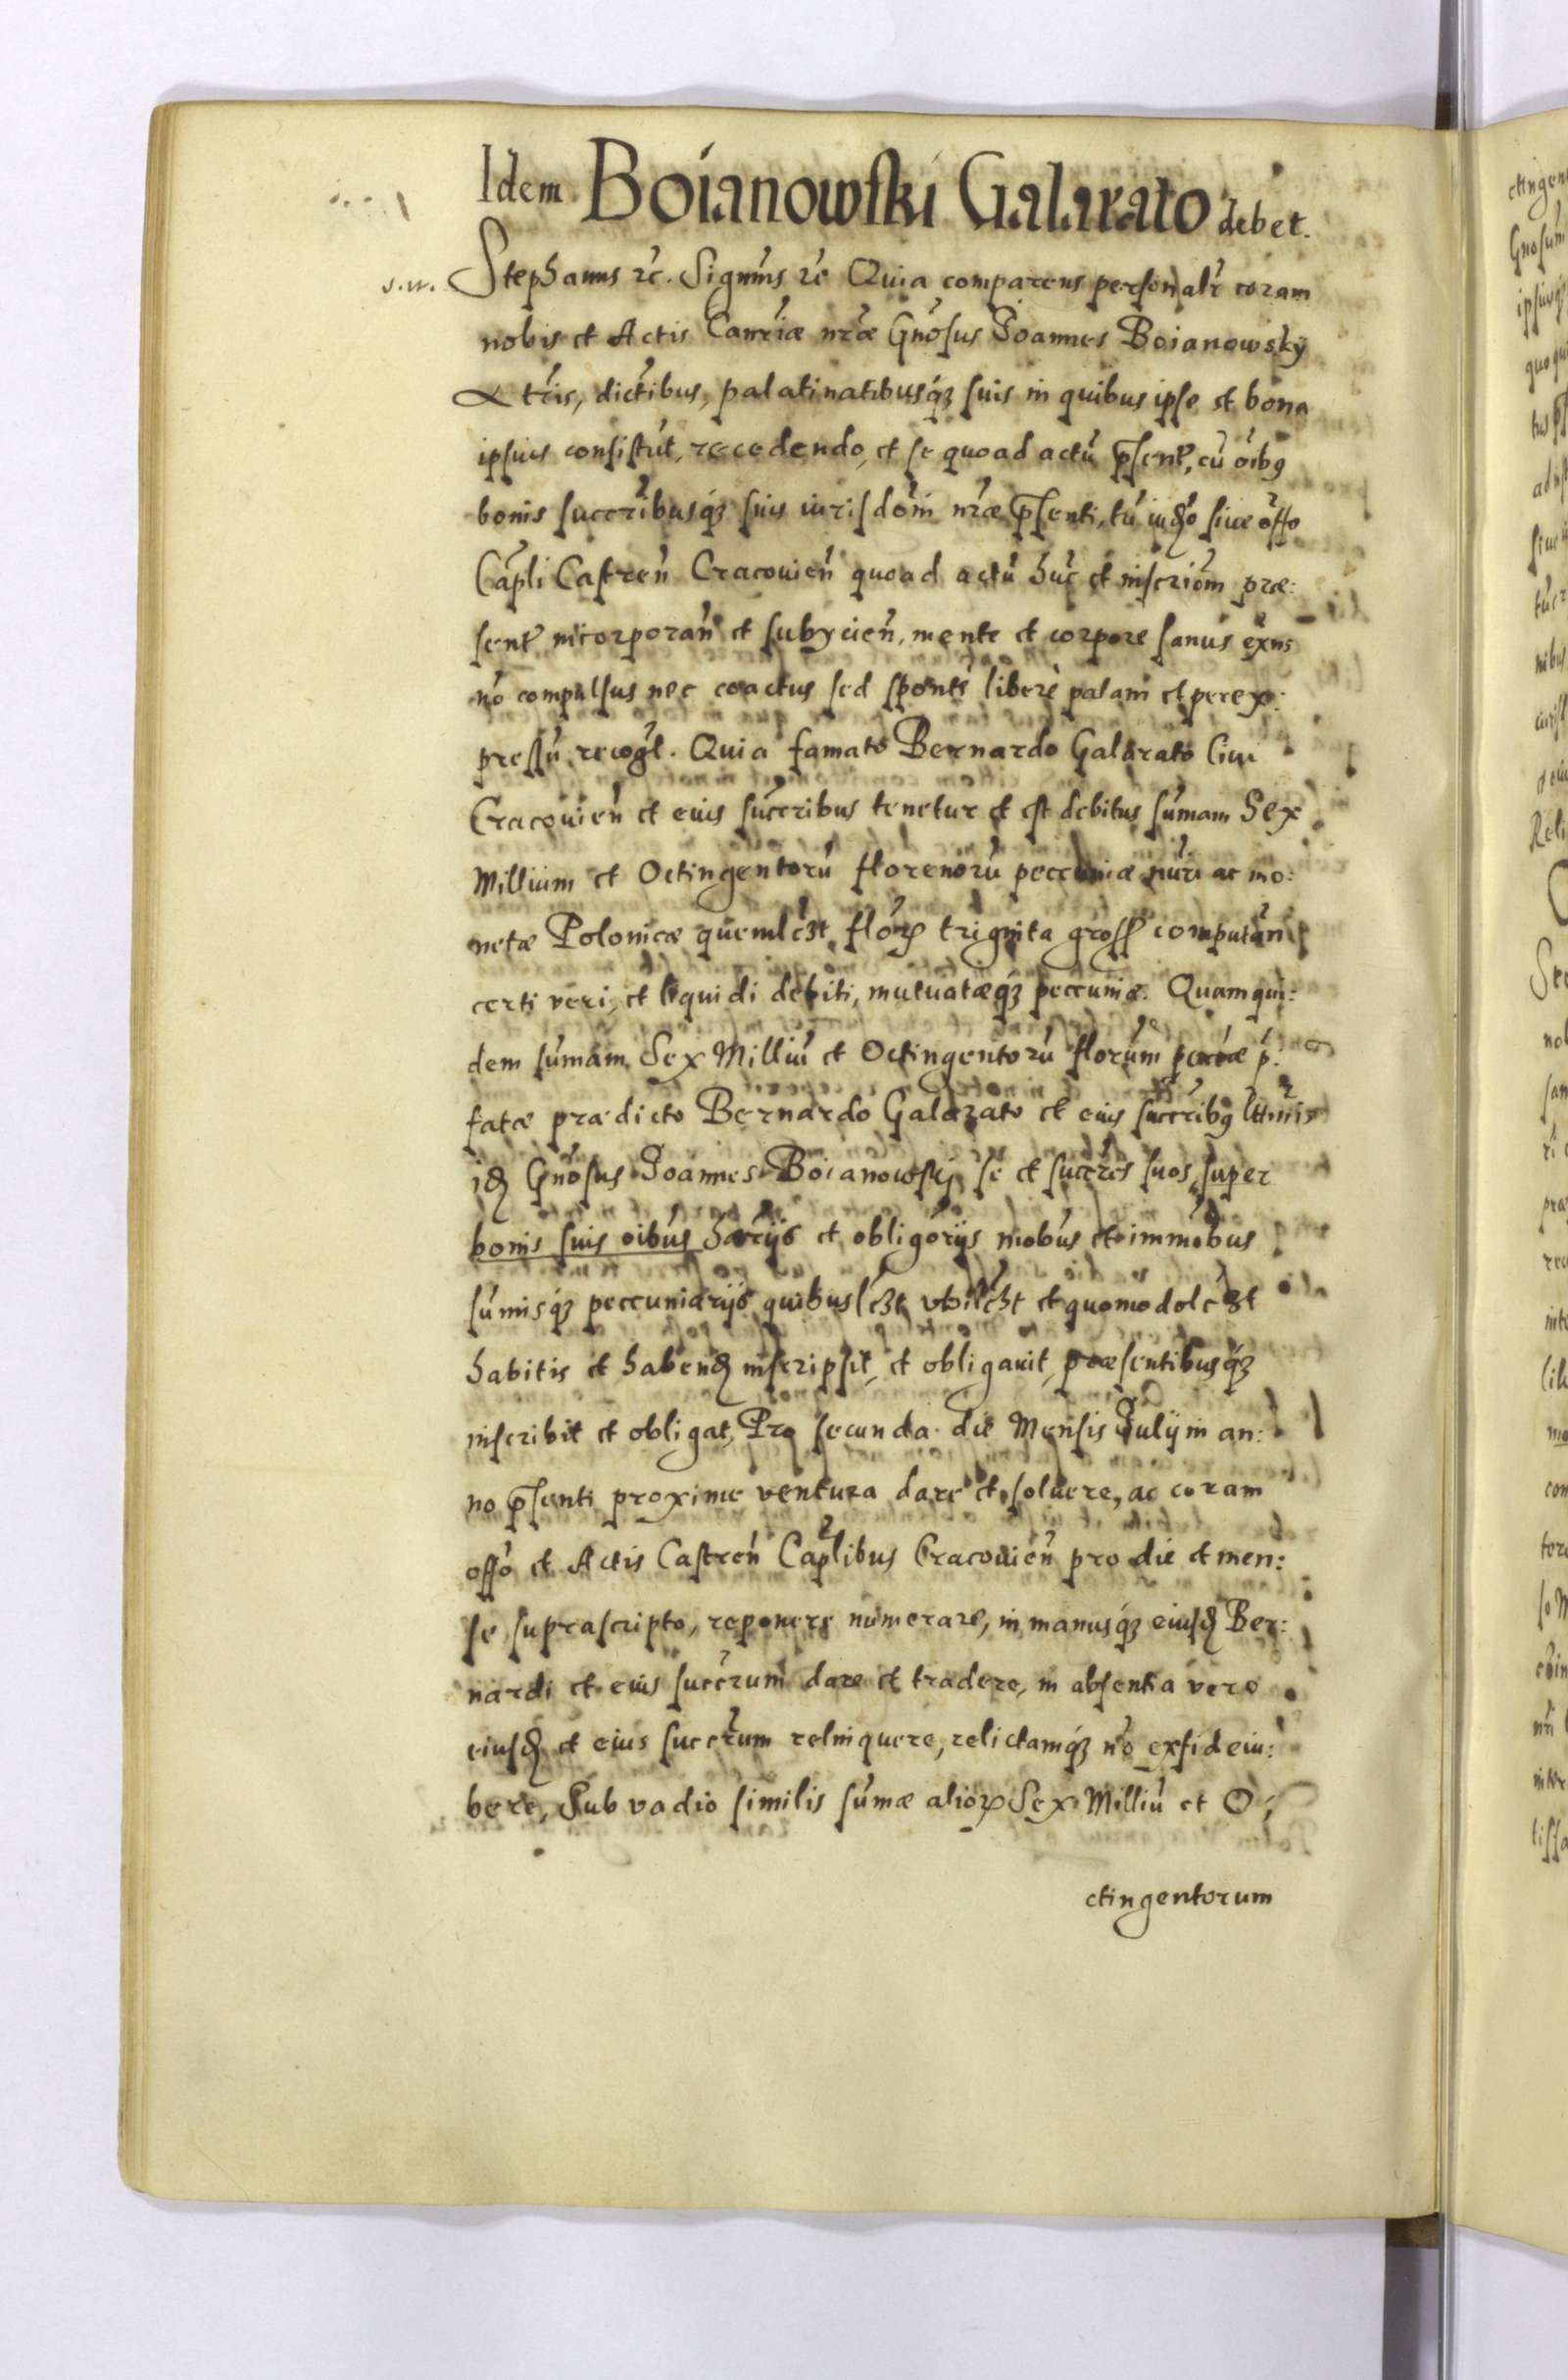 Idem Boianowski Galarato debet.
Stephanus rc. Signms rc Quia comparens personalr coram
nobis et Actis Cancriæ nræ Gnosus Joannes Boianowsky
tris, dictibus, palatinatibusq́ suis in quibus ipse et bona
ipsius consistūt, recedendo, et se quoad actū psent, cū oibg
bonis succribusq́ suis iurisdoni nræ psenti, tū iudo siue offo
Capli Castren̄ Cracouien̄ quoad actū hūc et inscriom præ:
sent incorporan̄ et subycien̄, mente et corpore sanus exns
nō compulsus nec coactus sed sponte libere palam et per ex:
pressū recogt. Quia famato Bernardo Galarato Ciui
Cracouien̄ et eius succribus tenetur et est debitus sūmam Sex
Millium et Octingentorū florenorū peccuniæ nūri ac mo:
netæ Polonicæ quemlczt flor trigita gross computan̄
certi veri, et liquidi debiti, mutuatæq́ peccuniæ. Quamqui:
dem sūmam Sex Milliū et Octingentorū florum pecciæ p:
fatæ prædicto Bernardo Galarato et eius succribg lttmis
id Gnosus Joannes Boianowsky se et succres suos super
bonis suis oibus hærijs et obligorijs mobus et immobus
sūmisq́ peccuniarijs quibuslczt vbilczt et quomodolczt
habitis et habend inscripsit, et obligauit, præsentibusq́
inscribit et obligat, Pro secunda die Mensis Julij in an:
no psenti proxime ventura dare et soluere, ac coram
offo et Actis Castren̄ Caplibus Cracouien̄ pro die et men:
se suprascripto, reponere numerare, in manusq́ eiusd Ber:
nardi et eius succrum dare et tradere, in absentia vero
eiusd et eius succrum relinquere, relictamq́ nō exfideiu:
bere, Sub vadio similis sūmæ alior Sex Milliū et O:
ctingentorum